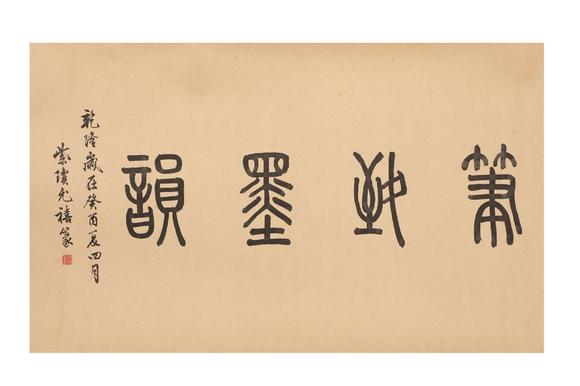 筆致墨韻
乾隆歲在癸酉夏四月
紫瓊允禧篆